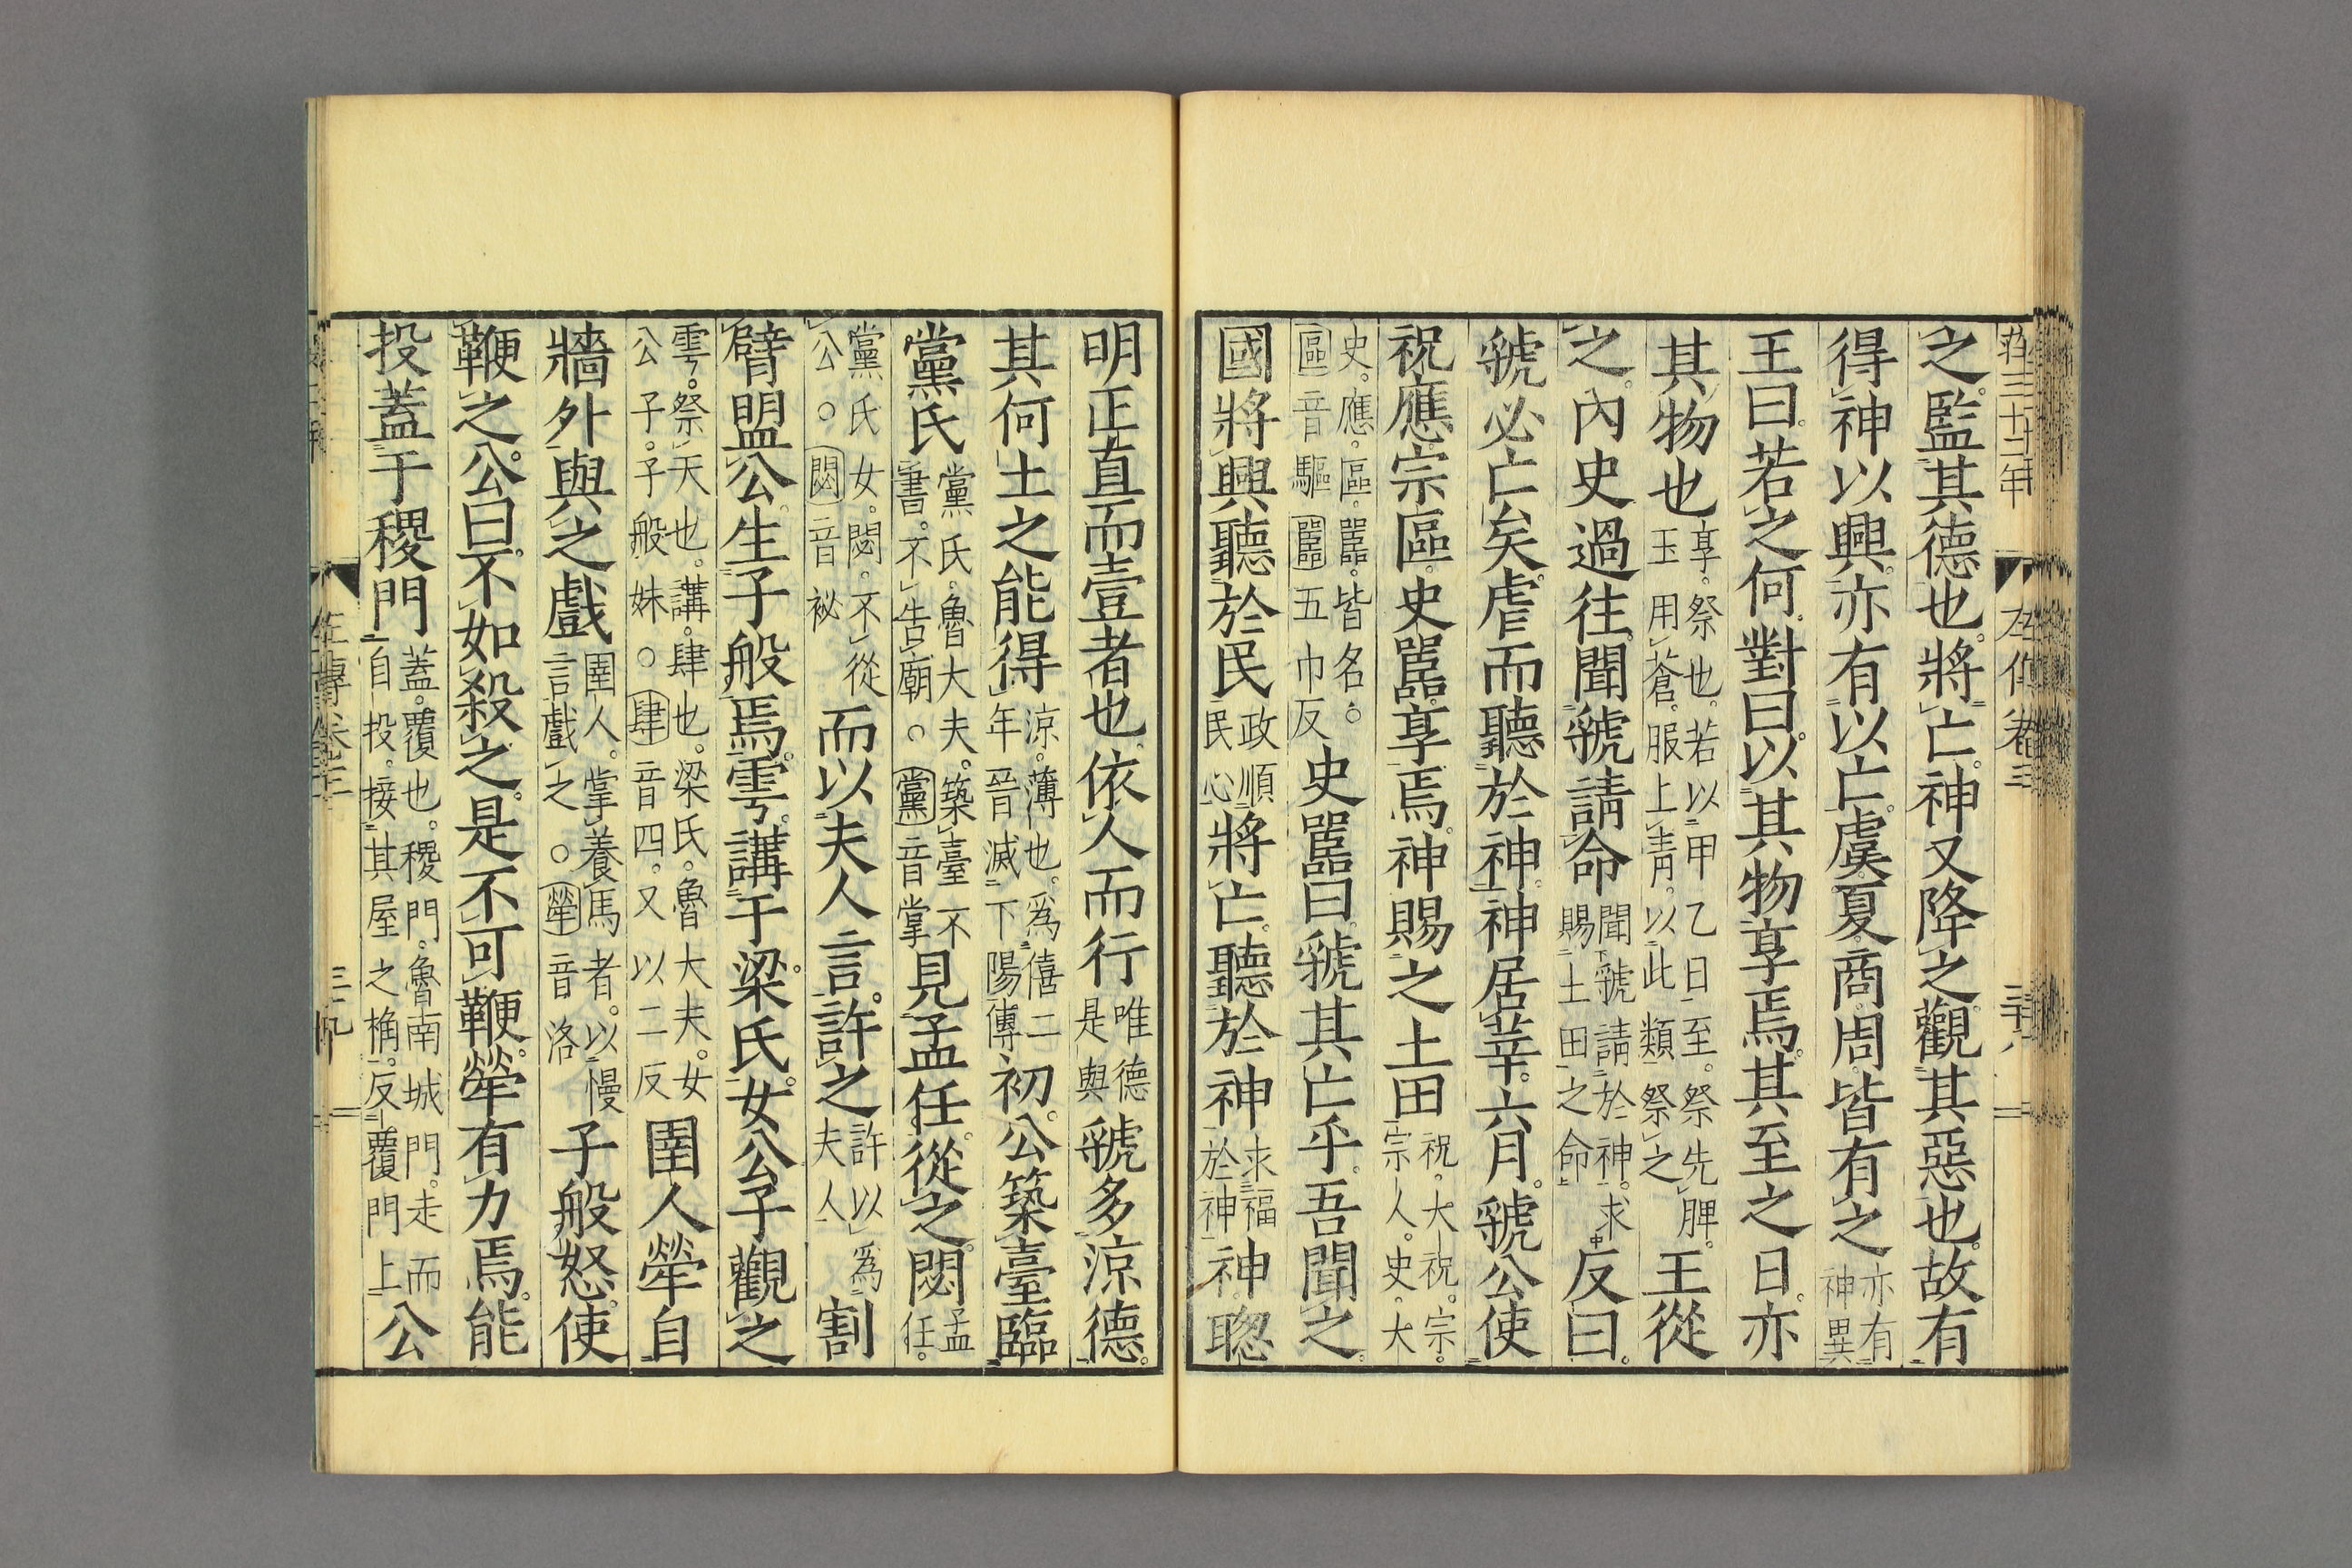 莊三十二年
左傳卷三
之。監其德也。將亡。神又降之。觀其惡也。故有
得神以興。亦有以亡。虞夏商周。皆有之亦有神異
王曰。若之何。對曰。以其物享焉。其至之日。亦
其物也享。祭也。若以甲乙日至。祭先脾。玉用蒼。服上青。以此類祭之王從
之。內史過往。聞虢請命聞虢請於神。求賜土田之命反曰。
虢必亡矣。虐而聽於神。神居莘。六月。虢公使
祝應。宗區。史嚚。享焉。神賜之土田祝。大祝。宗。宗人。史。大
史。應。區。嚚。皆名。○區音驅嚚五巾反史嚚曰。虢其亡乎。吾聞之。
國將興。聽於民政順民心將亡。聽於神求福於神神。聰
明正直而壹者也。依人而行唯德是與虢多涼德。
其何土之能得涼。薄也。爲僖二年晉滅下陽傳初。公築臺臨
黨氏黨氏。魯大夫。築臺不書。不告廟。○黨音掌見孟任。從之。閟孟任。
黨氏女。閟。不從公。○閟音祕而以夫人言。許之許以爲夫人割
臂盟公。生子般焉。雩。講于梁氏。女公子觀之
雩。祭天也。講。肄也。梁氏。魯大夫。女公子。子般妹。○肄音四。又以二反圉人犖自
牆外與之戲圉人。掌養馬者。以慢言戲之。○犖音洛子般怒。使
鞭之。公曰。不如殺之。是不可鞭。犖有力焉。能
投蓋于稷門蓋。覆也。稷門。魯南城門。走而自投。接其屋之桷。反覆門上公